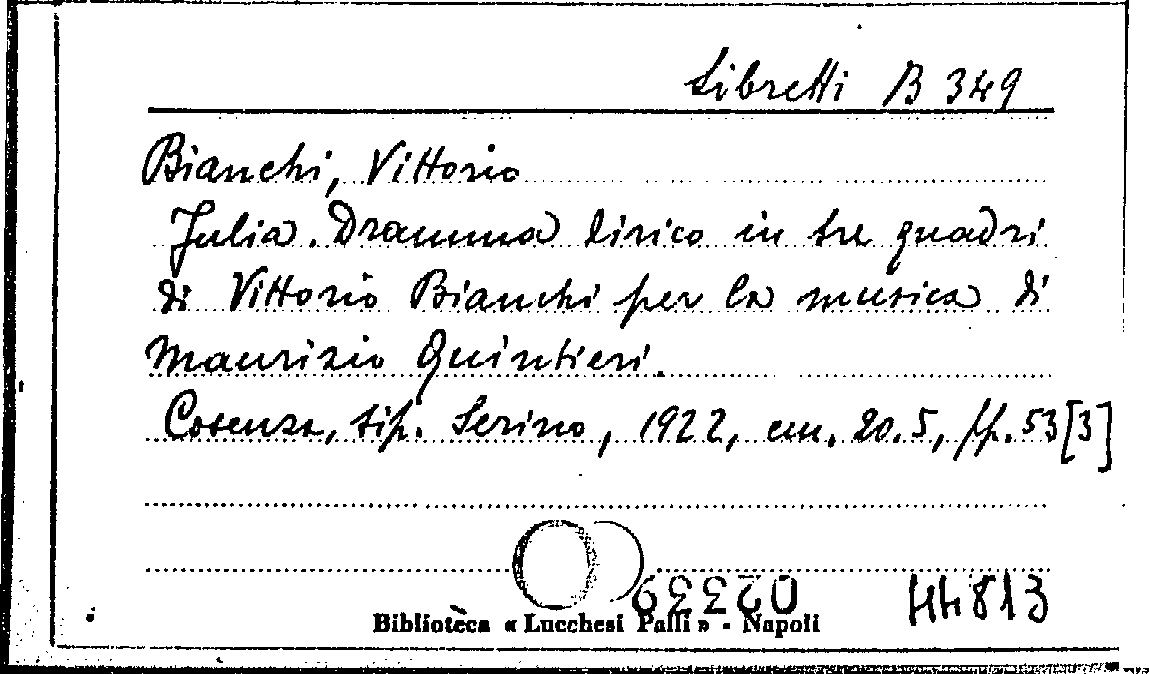 Libretti B 349
Bianchi, Vittorio
Julia. Dramma lirico in tre quadri
di Vittorio Bianchi per la musica di
Maurizio Quintieri.
Cosenza, tip. Serino, 1922, cm. 20.5, pp. 53 [3]
44813
Biblioteca « Lucchesi Palli » - Napoli